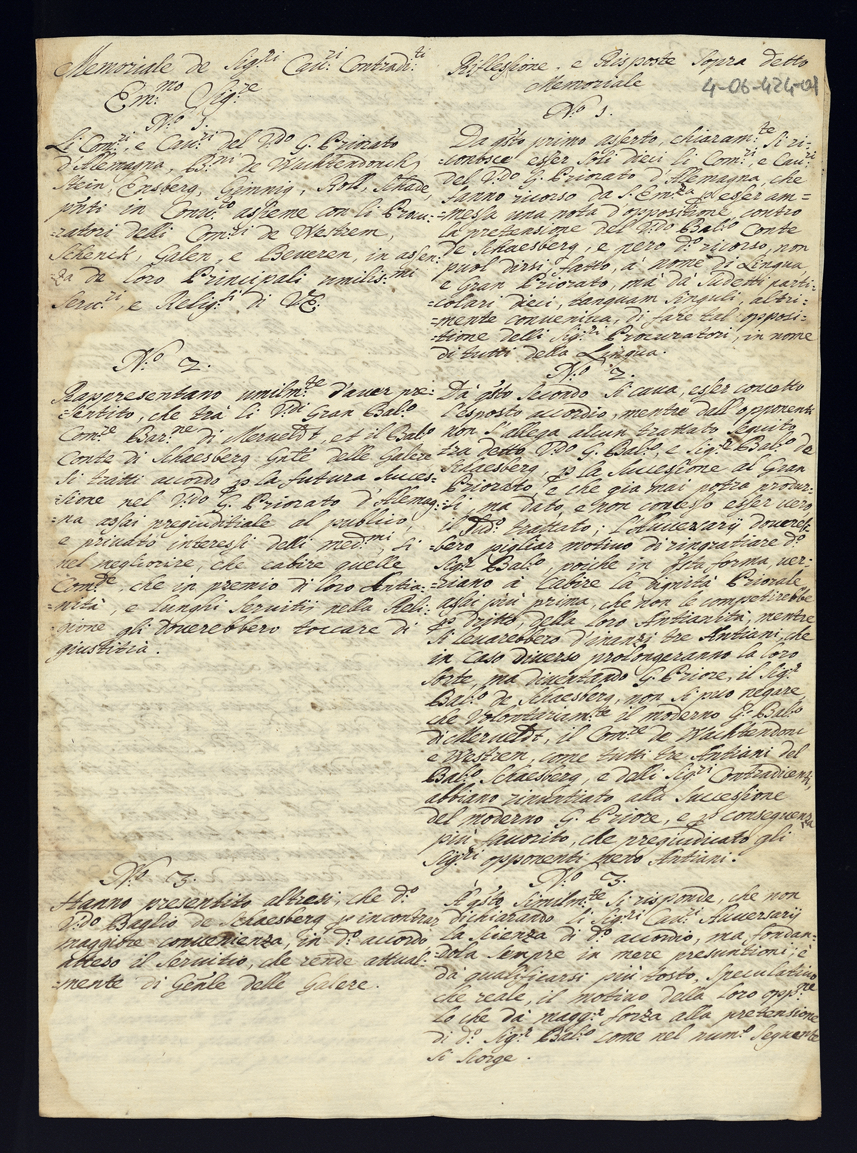 Memoriale de Sig:ri Cau:ri Contradi:ti
Em:mo Sig:re
N.o 1.
Li Com:ri, e Cau:ri del V:do G. Priorato
d'Allemagna, B:ni de Wachtendonck,
Stein, Ensberg, Gymnig, Roll, Schade,
pñti in Conu:to assieme con li Procu=
=ratori delli Com:ri de Westrem,
Schenck, Galen, e Beueren, in assen=
=za de loro Principali umilis:mi
Seru:ri, e Relig:si di V.E.
N.o 2.
Rappresentano umilm:te d'auer pre=
=sentito, che trà li V:di Gran Bal:o
Com:re Bar:ne di Merueldt, et il Bal:o
Conte di Schaesberg Gñte delle Galere
si tratti accordo p la futura Succes=
=sione nel V:do G. Priorato d'Allemag=
=na assai pregiuditiale al publico,
e priuato interesse delli med:mi, si
nel megliorire, che cabire quelle
Com:de, che in premio di loro Antia=
=nità, e lunghi Seruitij nella Reli=
=gione gli douerebbero toccare di
giustitia.
N.o 3.
Hanno presentito altresi, che d:o
V:do Baglio de Schaesberg p incontrar
maggiore conuenienza, in d:o accordo
atteso il Seruitio, che rende attual=
=mente di Geñle delle Galere.
Riflessione, e Risposte sopra detto
Memoriale
4-06-424-01
N.o 1.
Da qsto primo asserto, chiaram:te si ri=
=conosce esser soli dieci li Com:ri, e Cau:ri
del V:do G. Priorato d'Allemagna, che
fanno ricorso da S. Em:za p esser am=
=messa una nota d'oppositione, contro
la pretensione del V:do Bal:o Conte
de Schaesberg, e però d:o ricorso, non
puol dirsi fatto, a nome di Lingua,
e Gran Priorato, mà da sudetti parti=
=colari dieci, tanquam singuli, altri=
=mente conueniua, di fare tal opposi=
=tione delli Sig:ri Procuratori, in nome
di tutti della Lingua.
N.o 2.
Da qsto secondo si caua, esser concetto
l'esposto accordio, mentre dall'opponenti
non s'allega alcun trattato seguito
tra detto V:do G. Bal:o e Sig:r Bal:o de
Schaesberg, p la Successione al Gran
Priorato e che già mai potrà produr=
=si, ma dato, e non concesso esser vero
il sud:o trattato, l'Auuersarij douereb=
=bero pigliar motiuo di ringratiare d:o
Sig:r Bal:o, poiche in qsta forma, ver=
=ziano à Cabire la dignità Priorale
assai più prima, che non le competirebbe
p dritto, della loro Antianità, mentre
si leuarebbero d'inanzi tre Antiani, che
in caso diuerso prolongeranno la loro
sorte, ma diuentando G. Priore, il Sig:r
Bal:o de Schaesberg, non si puo negare,
che volontariam:te il moderno G: Bal:o
di Merueldt, il Com:re de Wachtendonc
e Westrem, come tutti tre Antiani del
Bal:o Schaesberg, e delli Sig:ri Contradicenti,
abbiano rinuntiato alla Successione
del moderno G. Priore, e p consequenza
più fauorito, che pregiudicato gli
Sig:ri opponenti meno Antiani.
N.o 3.
A qsto similm:te si risponde, che non
dichiarando li Sig:ri Cau:ri Auuersarij
la scienza di d:o accordio, ma fondan=
=dola sempre in mere presuntioni, è
da qualificarsi più tosto, Speculatiuo
che reale, il motiuo della loro opp:ne
lo che dà magg:r forza alla pretensione
di d:o Sig:r Bal:o come nel num:o seguente
si scorge.